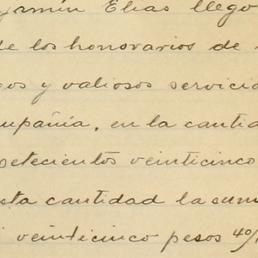 jamín Elías llegó
de los honorarios de
os y valiosos servicio
mpañía, en la cantida
setecientos veinticinco
sta cantidad la sum
veinticinco pesos 40/1